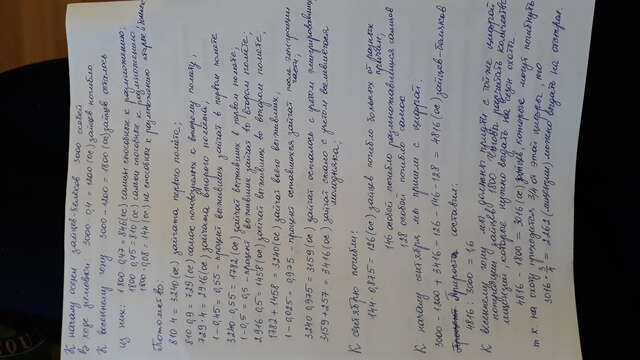 К началу осени зайцев-беляков 3000 особей
В ходе зимовки: 3000·0,4 = 1200 (ос) зайцев погибло
К весеннему гону 3000 - 1200 = 1800 (ос) зайцев осталось
из них: 1800·0,47 = 846 (ос) самцы способные к размножению;
1800·0,45 = 810 (ос) самки способные к размножению
1800·0,08 = 144 (ос) не способные к размножению старые и больные
Потомство:
810·4 = 3240 (ос) зайчата первого помёта;
810·0,9 = 729 (ос) самок половозрелых к второму помёту,
729·4 = 2916 (ос) зайчата второго помёта;
1-0,45 = 0,55 - процент выживших зайчат в первом помёте
3240·0,55 = 1782 (ос) зайчат выживших в первом помёте,
1-0,5 = 0,5 - процент выживших зайчат во втором помёте;
2916·0,5 = 1458 (ос) зайчат выживших во втором помёте;
1782 + 1458 = 3240 (ос) зайчат всего выживших,
1-0,025 = 0,975 - процент оставшихся зайчат после
3240·0,975 = 3159 (ос) зайчат осталось с учётом
3159 + 257 = 3416 (ос) зайчат стало с учётом вселившегося
молодняка;
К сентябрю погибли:
144·0,875 = 126 (ос) зайцев погибло больных от разных
причин;
146 особой погибло размножавшихся самцов
128 особой погибло самок
К началу сентября мы пришли с цифрой:
3000 - 1200 + 3416 - 126 - 146 - 128 = 4816 (ос) зайцев-беляков
Прирост составил:
4816 : 3000 = 1,6
К весеннему гону мы должны придти с той же цифрой
популяции зайцев 1800. Чтобы рассчитать количество
лицензий, которые нужно выдать на сезон охоты
4816 - 1800 = 3016 (ос) зайцев, которые могут погибнуть
т.к. на охоту приходится 3/4 от этой цифры, то
3016·3/4 = 2262 (лицензии) можно выдать на отстрел.